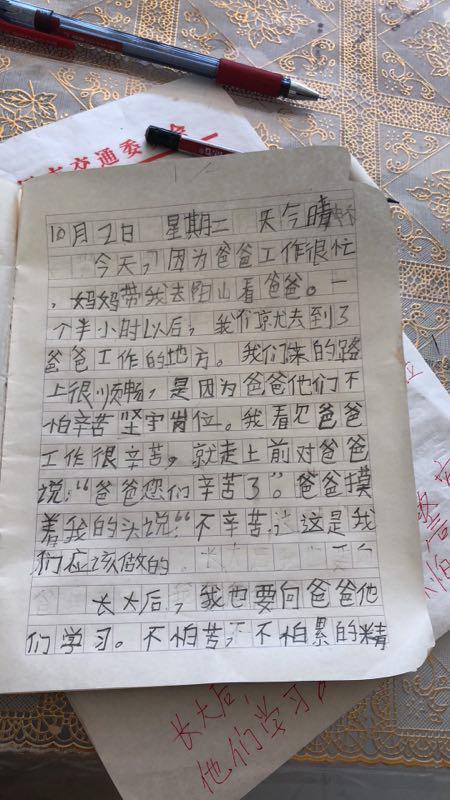 交通委
10月2日 星期二 天今晴
今天，因为爸爸工作很忙
，妈妈带我去阳山看爸爸。一
个半小时以后，我们就去到了
爸爸工作的地方。我们来的路
上很顺畅，是因为爸爸他们不
怕辛苦坚守岗位。我看见爸爸
工作很辛苦，就走上前对爸爸
说：“爸爸您们辛苦了”。爸爸摸
着我的头说：“不辛苦，这是我
们应该做的
长大后，我也要向爸爸他
们学习。不怕苦，不怕累的精
长大后
他们学习